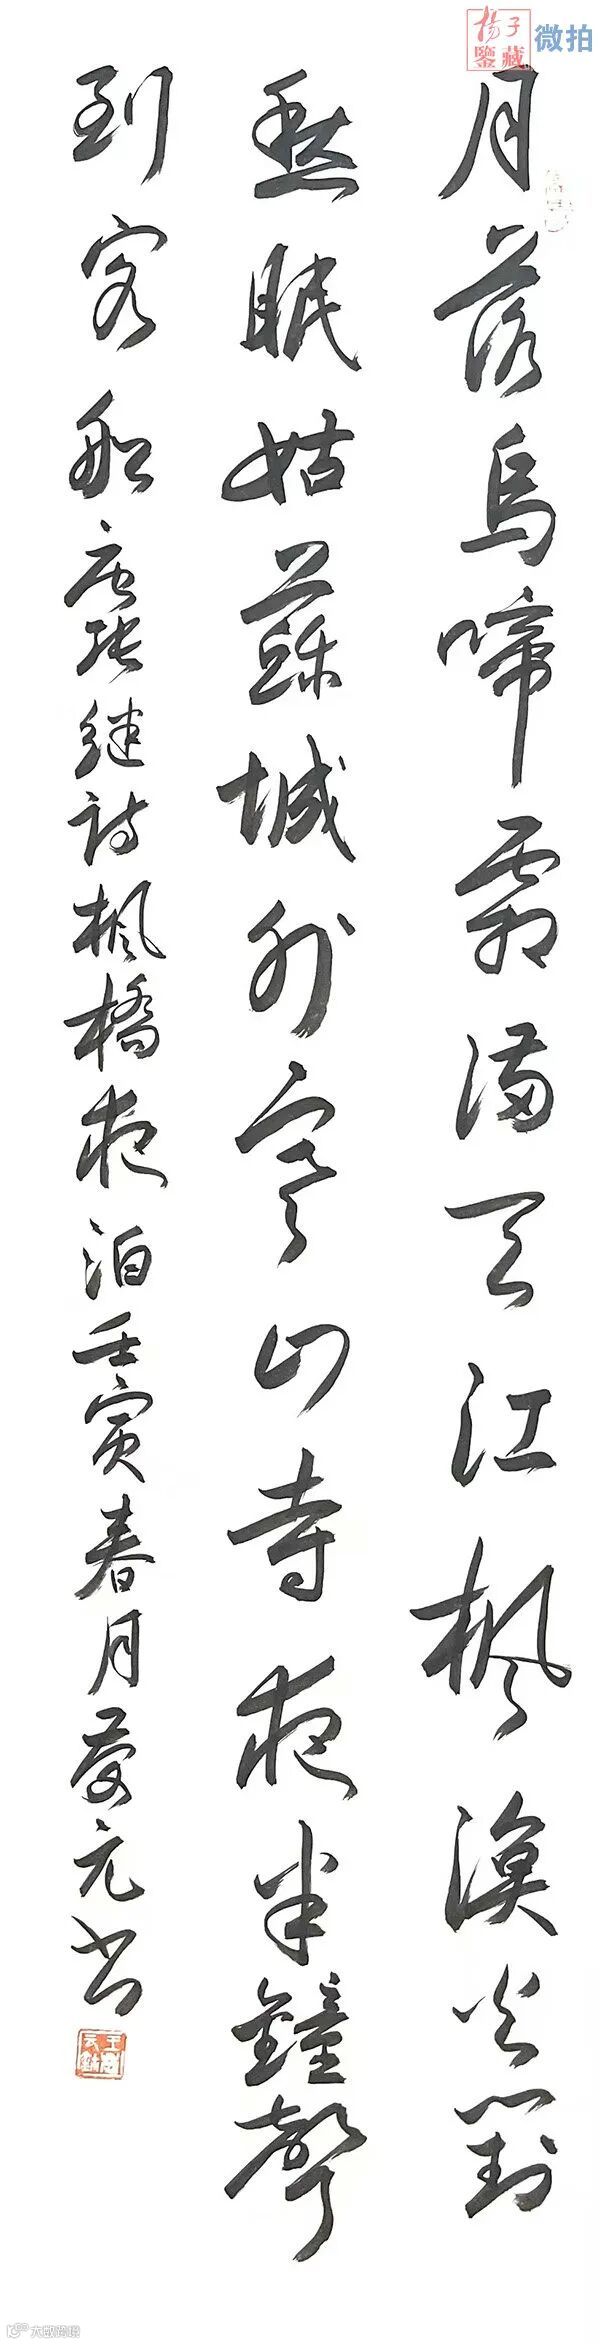 楊子鑒藏
微拍
月落烏啼霜滿天江楓漁火對
愁眠姑蘇城外寒山寺夜半鐘聲
到客船唐張繼詩楓橋夜泊壬寅春月慶元书